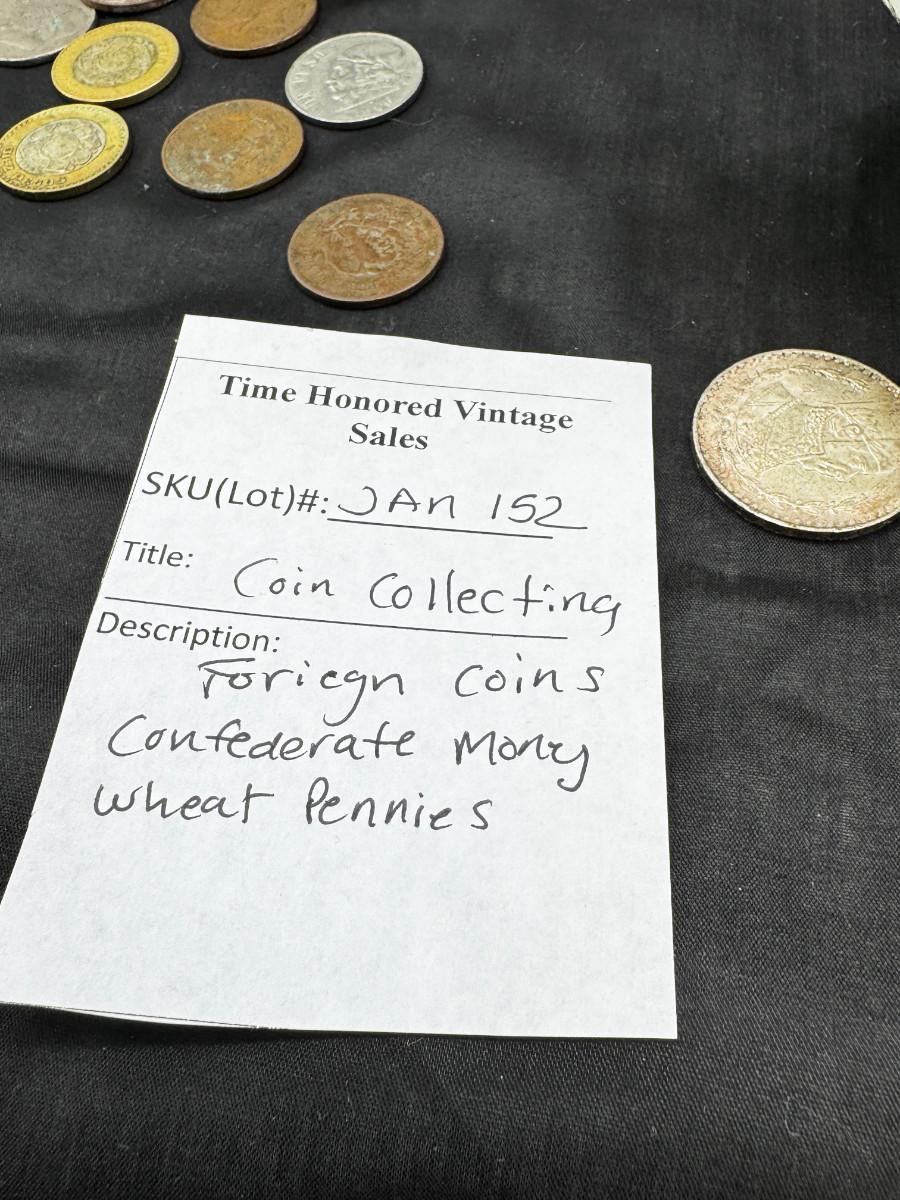 UN PESO
PESOS
Time Honored Vintage
Sales
SKU(Lot)#: JAN 152
Title: Coin Collecting
Description:
Foriegn Coins
Confederate Mony
Wheat Pennies